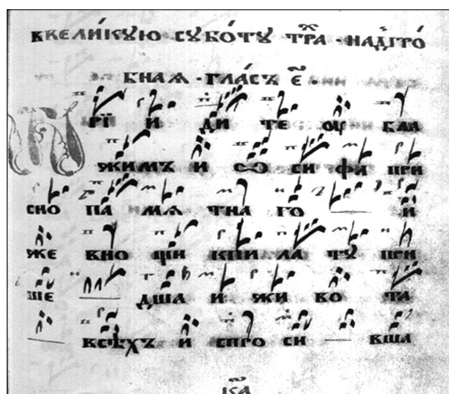 ввели́кую субо́ту ст҃ра · надгро́
бнаѧ · гла́съ е҃ ·
Прїи и ди те оу бла
жимъ и ѡ си фа при
сно па мѧ тна го и
же вно щи кпи ла ту при
ше дша и жи во та
всѣхъ и спро си вша